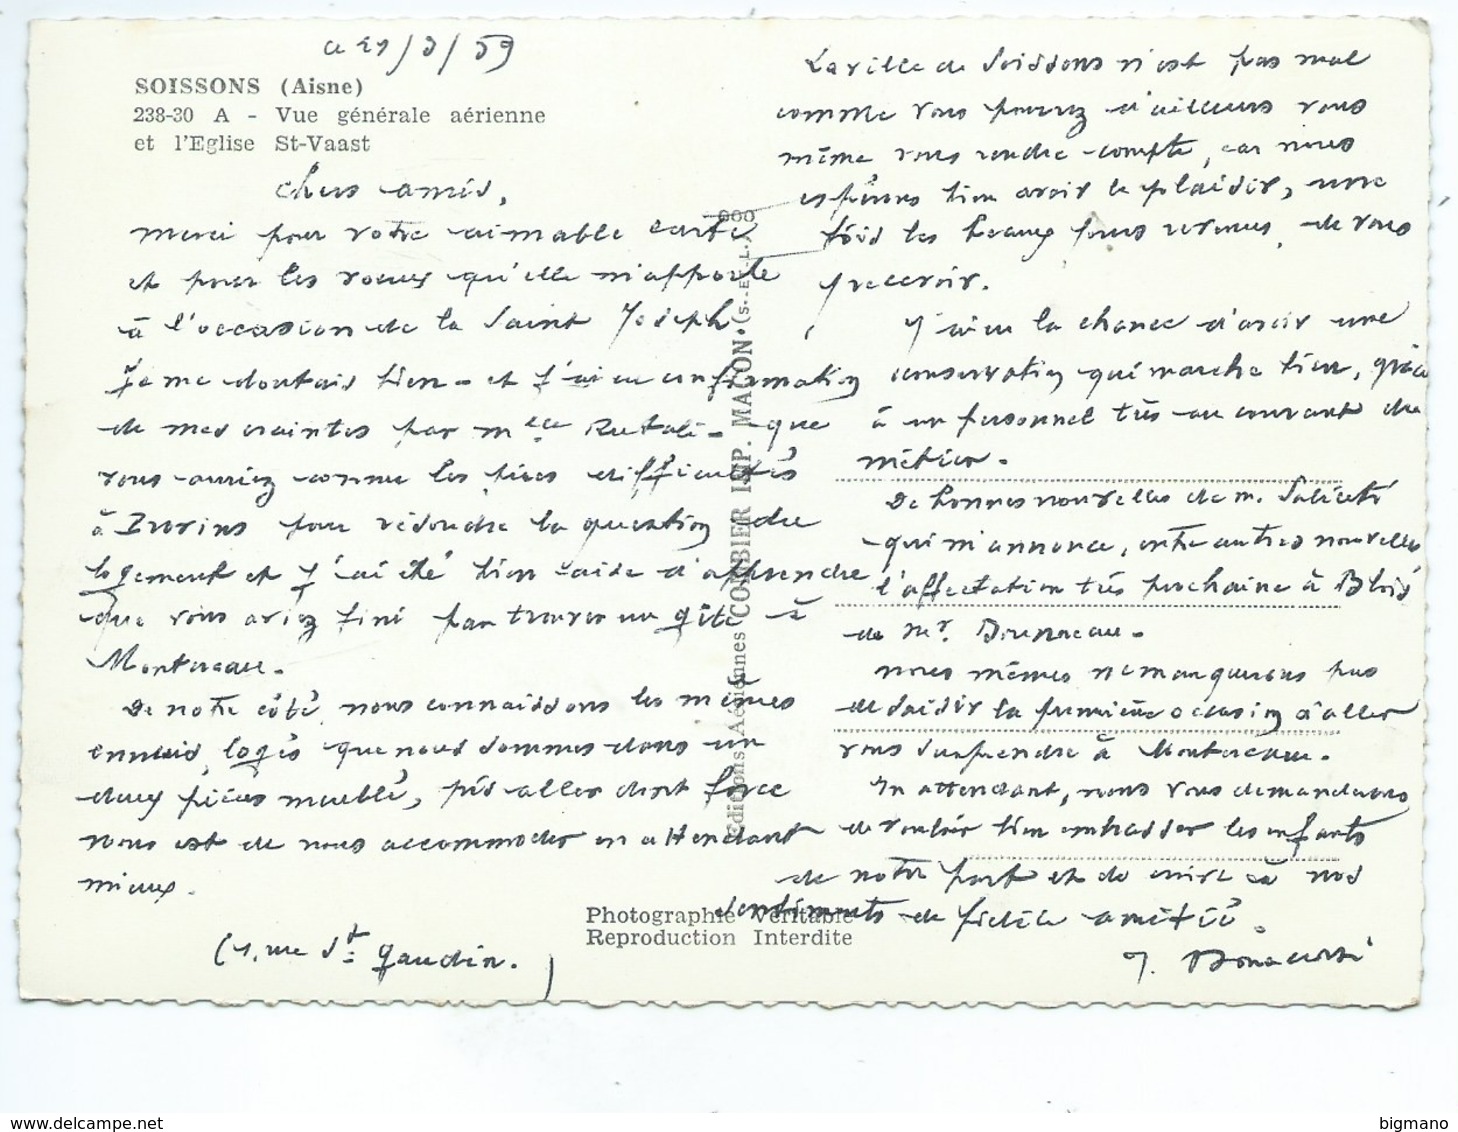 SOISSONS (Aisne)
238-30 A - Vue générale aérienne
et l'Eglise St-Vaast
Chers amis,
merci pour votre aimable carte
et pour les voeux qu'elle m'apporte
à l'occasion de la Saint Joseph
Je me doutais bien - et j'ai eu confirmation
de mes craintes par Mlle - que
vous auriez connu les pires difficultés
à pour résoudre la question du
logement et j'ai été bien aise d'apprendre
que vous aviez fini par trouver un gîte à
Montereau.
De notre côté, nous connaissons les mêmes
ennuis, logés que nous sommes dans un
deux pièces meublé, pis aller dont force
nous est de nous accommoder en attendant
mieux.
rue St Gaudin.)
Editions Aériennes COMBIER IMP. MACON (S.-E.-L.) 000
Photographie Véritable
Reproduction Interdite
La ville de Soissons n'est pas mal
comme vous pourrez d'ailleurs vous
même vous rendre compte, car nous
espérons bien avoir le plaisir, une
fois les beaux jours revenus, de vous
recevoir.
J'ai eu la chance d'avoir une
conservation qui marche bien, grâce
à un personnel très au courant du
métier.
De bonnes nouvelles de M. Saliceti
qui m'annonce, entre autres nouvelles
l'affectation très prochaine à Blois
de Mr.
Nous mêmes ne manquerons pas
de saisir la première occasion d'aller
vous surprendre à Montereau.
En attendant, nous vous demanderons
de vouloir bien embrasser les enfants
de notre part et de croire à nos
sentiments de fidèle amitié.
J. Bonacorsi
bigmano